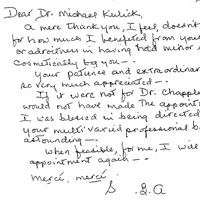 Dear Dr. Michael Kulick,
a mere thank you, I feel, doesn't
for how much I benefited from your
or adroitness in having had minor s
cosmetically by you —.
Your patience and extraordinar
so very much appreciated —.
If it were not for Dr. Chapple
would not have made the appoint
I was blessed in being directed
your multi varied professional b
astounding —.
When feasible, for me, I will
appointment again —.
Merci, merci
S. A